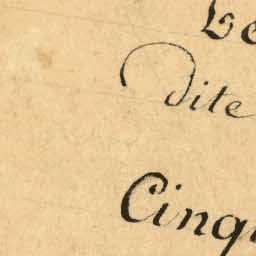 Le
dite
Cinq